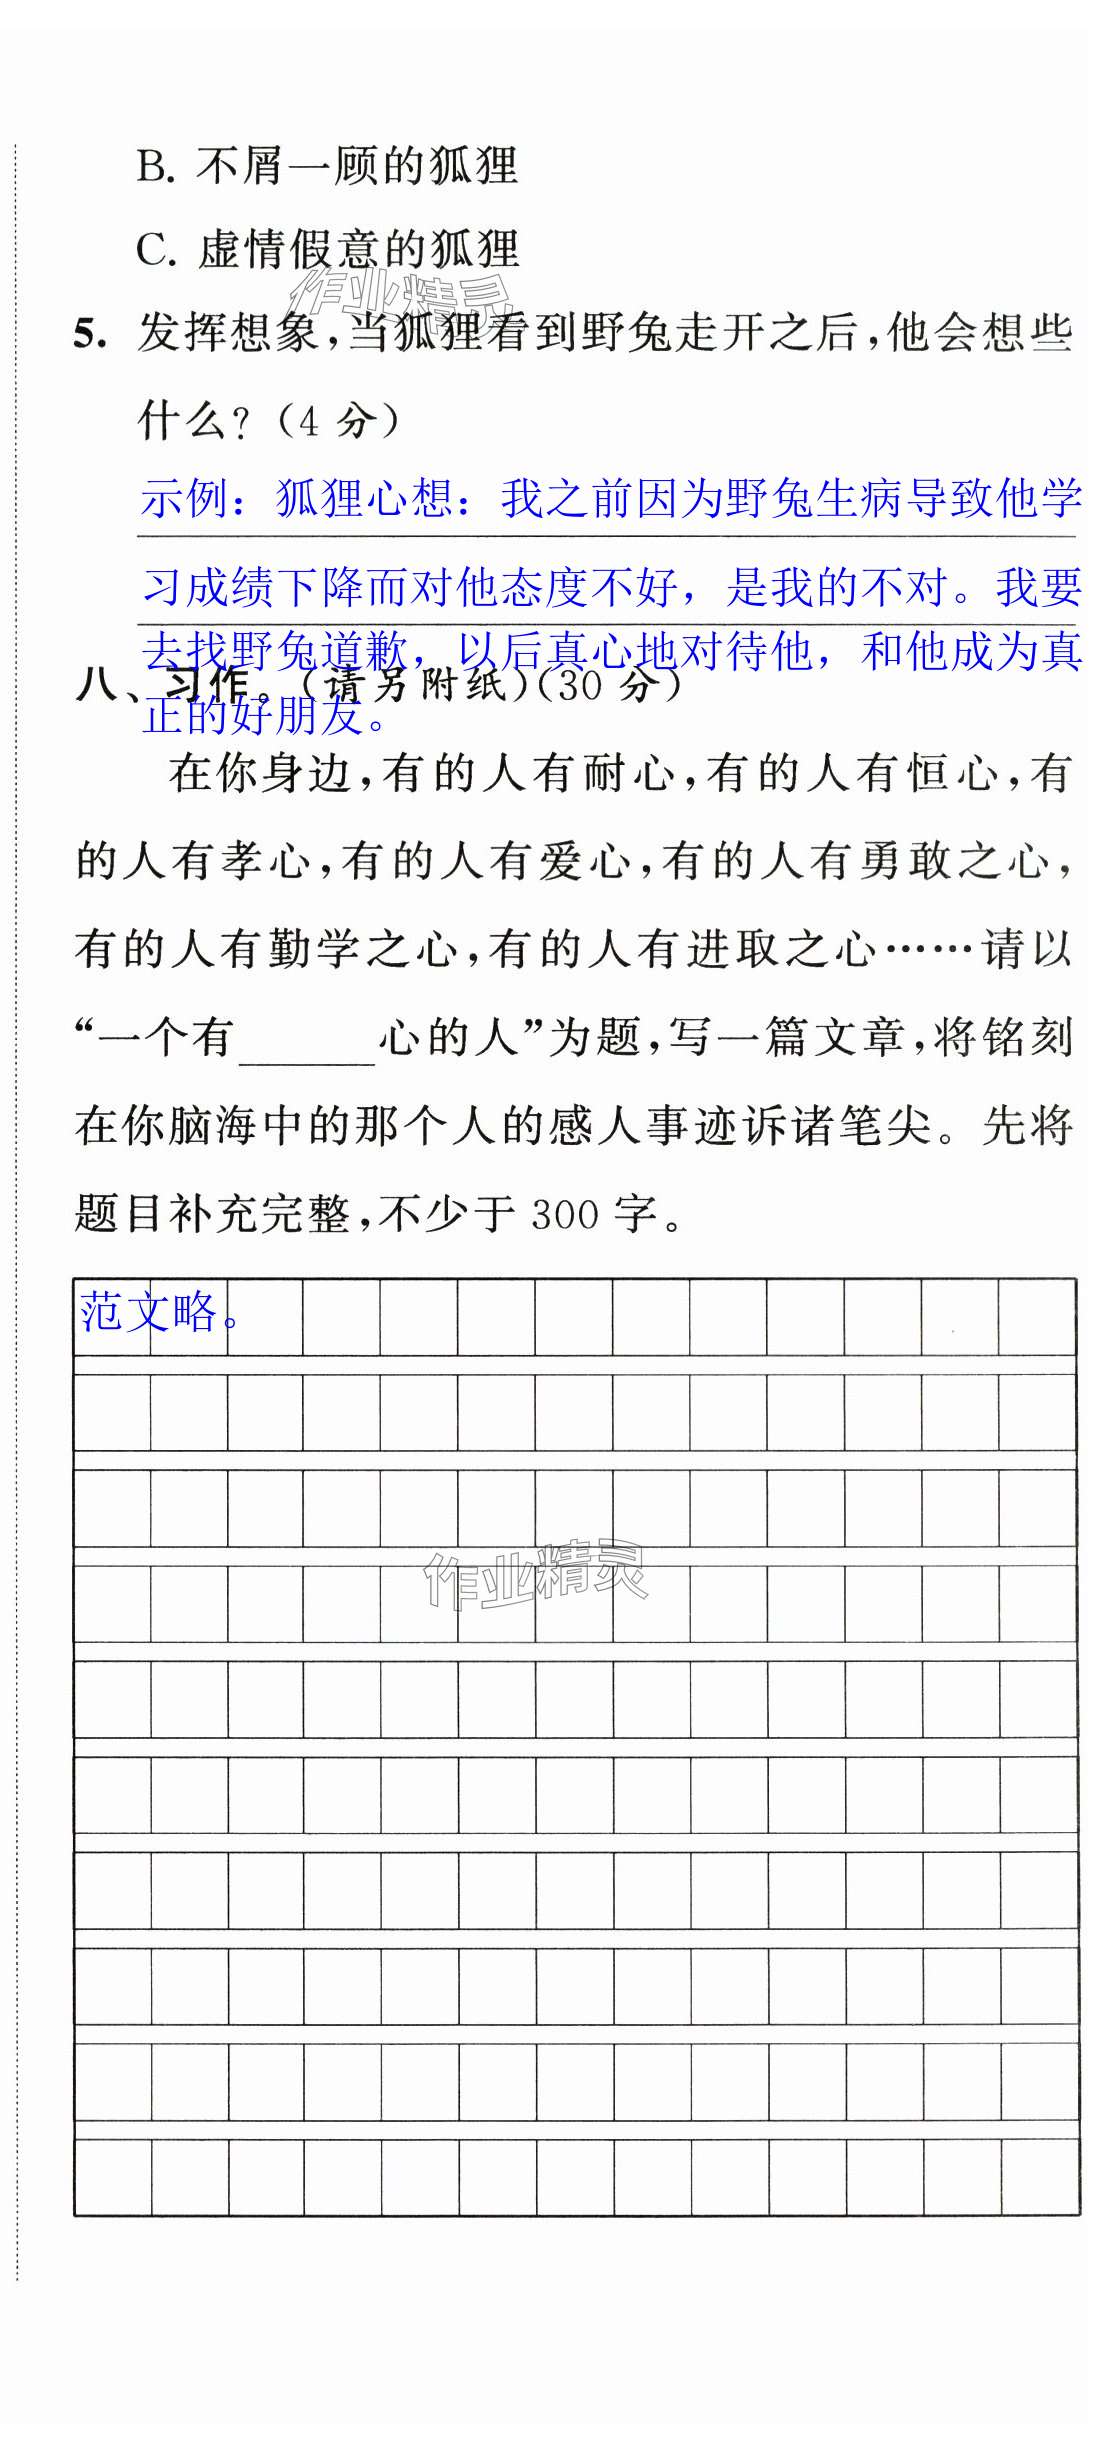 B. 不屑一顾的狐狸
C. 虚情假意的狐狸
作业精灵
5. 发挥想象,当狐狸看到野兔走开之后,他会想些
什么?(4 分)
示例：狐狸心想：我之前因为野兔生病导致他学
习成绩下降而对他态度不好，是我的不对。我要
去找野兔道歉，以后真心地对待他，和他成为真
八、习作。(请另附纸)(30 分)
正的好朋友。
在你身边,有的人有耐心,有的人有恒心,有
的人有孝心,有的人有爱心,有的人有勇敢之心,
有的人有勤学之心,有的人有进取之心……请以
“一个有______心的人”为题,写一篇文章,将铭刻
在你脑海中的那个人的感人事迹诉诸笔尖。先将
题目补充完整,不少于 300 字。
范文略。
作业精灵